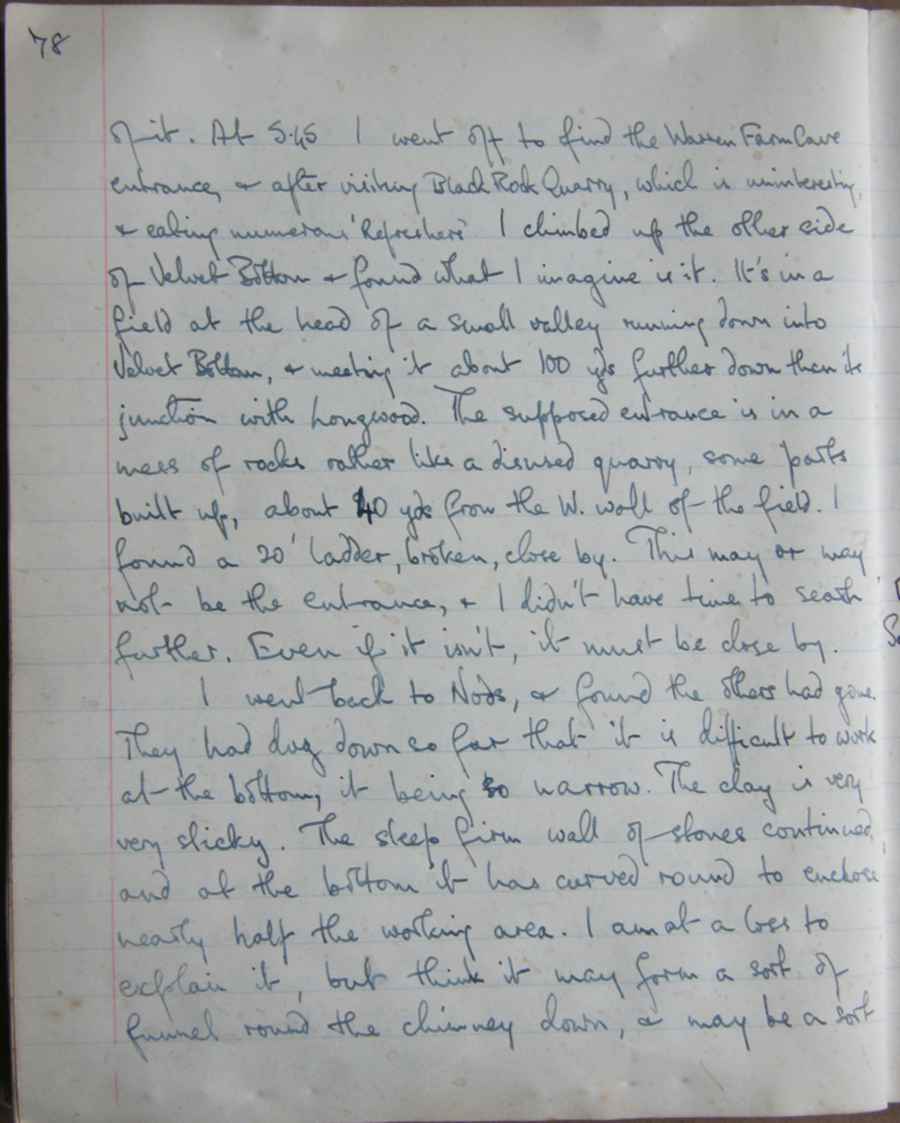 78
of it. At 5.45 I went off to find the Warren Farm Cave
entrance, & after visiting Black Rock Quarry, which is uninteresting,
& eating numerous 'Refreshers' I climbed up the other side
of Velvet Bottom & found what I imagine is it. It's in a
field at the head of a small valley running down into
Velvet Bottom, & meeting it about 100 yds further down than its
junction with Longwood. The supposed entrance is in a
mess of rocks rather like a disused quarry, some parts
built up, about 40 yds from the W. wall of the field. I
found a 20' ladder, broken, close by. This may or may
not be the entrance, & I didn't have time to search
further. Even if it isn't, it must be close by.
I went back to Nods, & found the others had gone.
They had dug down so far that it is difficult to work
at the bottom, it being so narrow. The clay is very
very sticky. The steep firm wall of stones continued,
and at the bottom it has curved round to enclose
nearly half the working area. I am at a loss to
explain it, but think it may form a sort of
funnel round the chimney down, & may be a sort